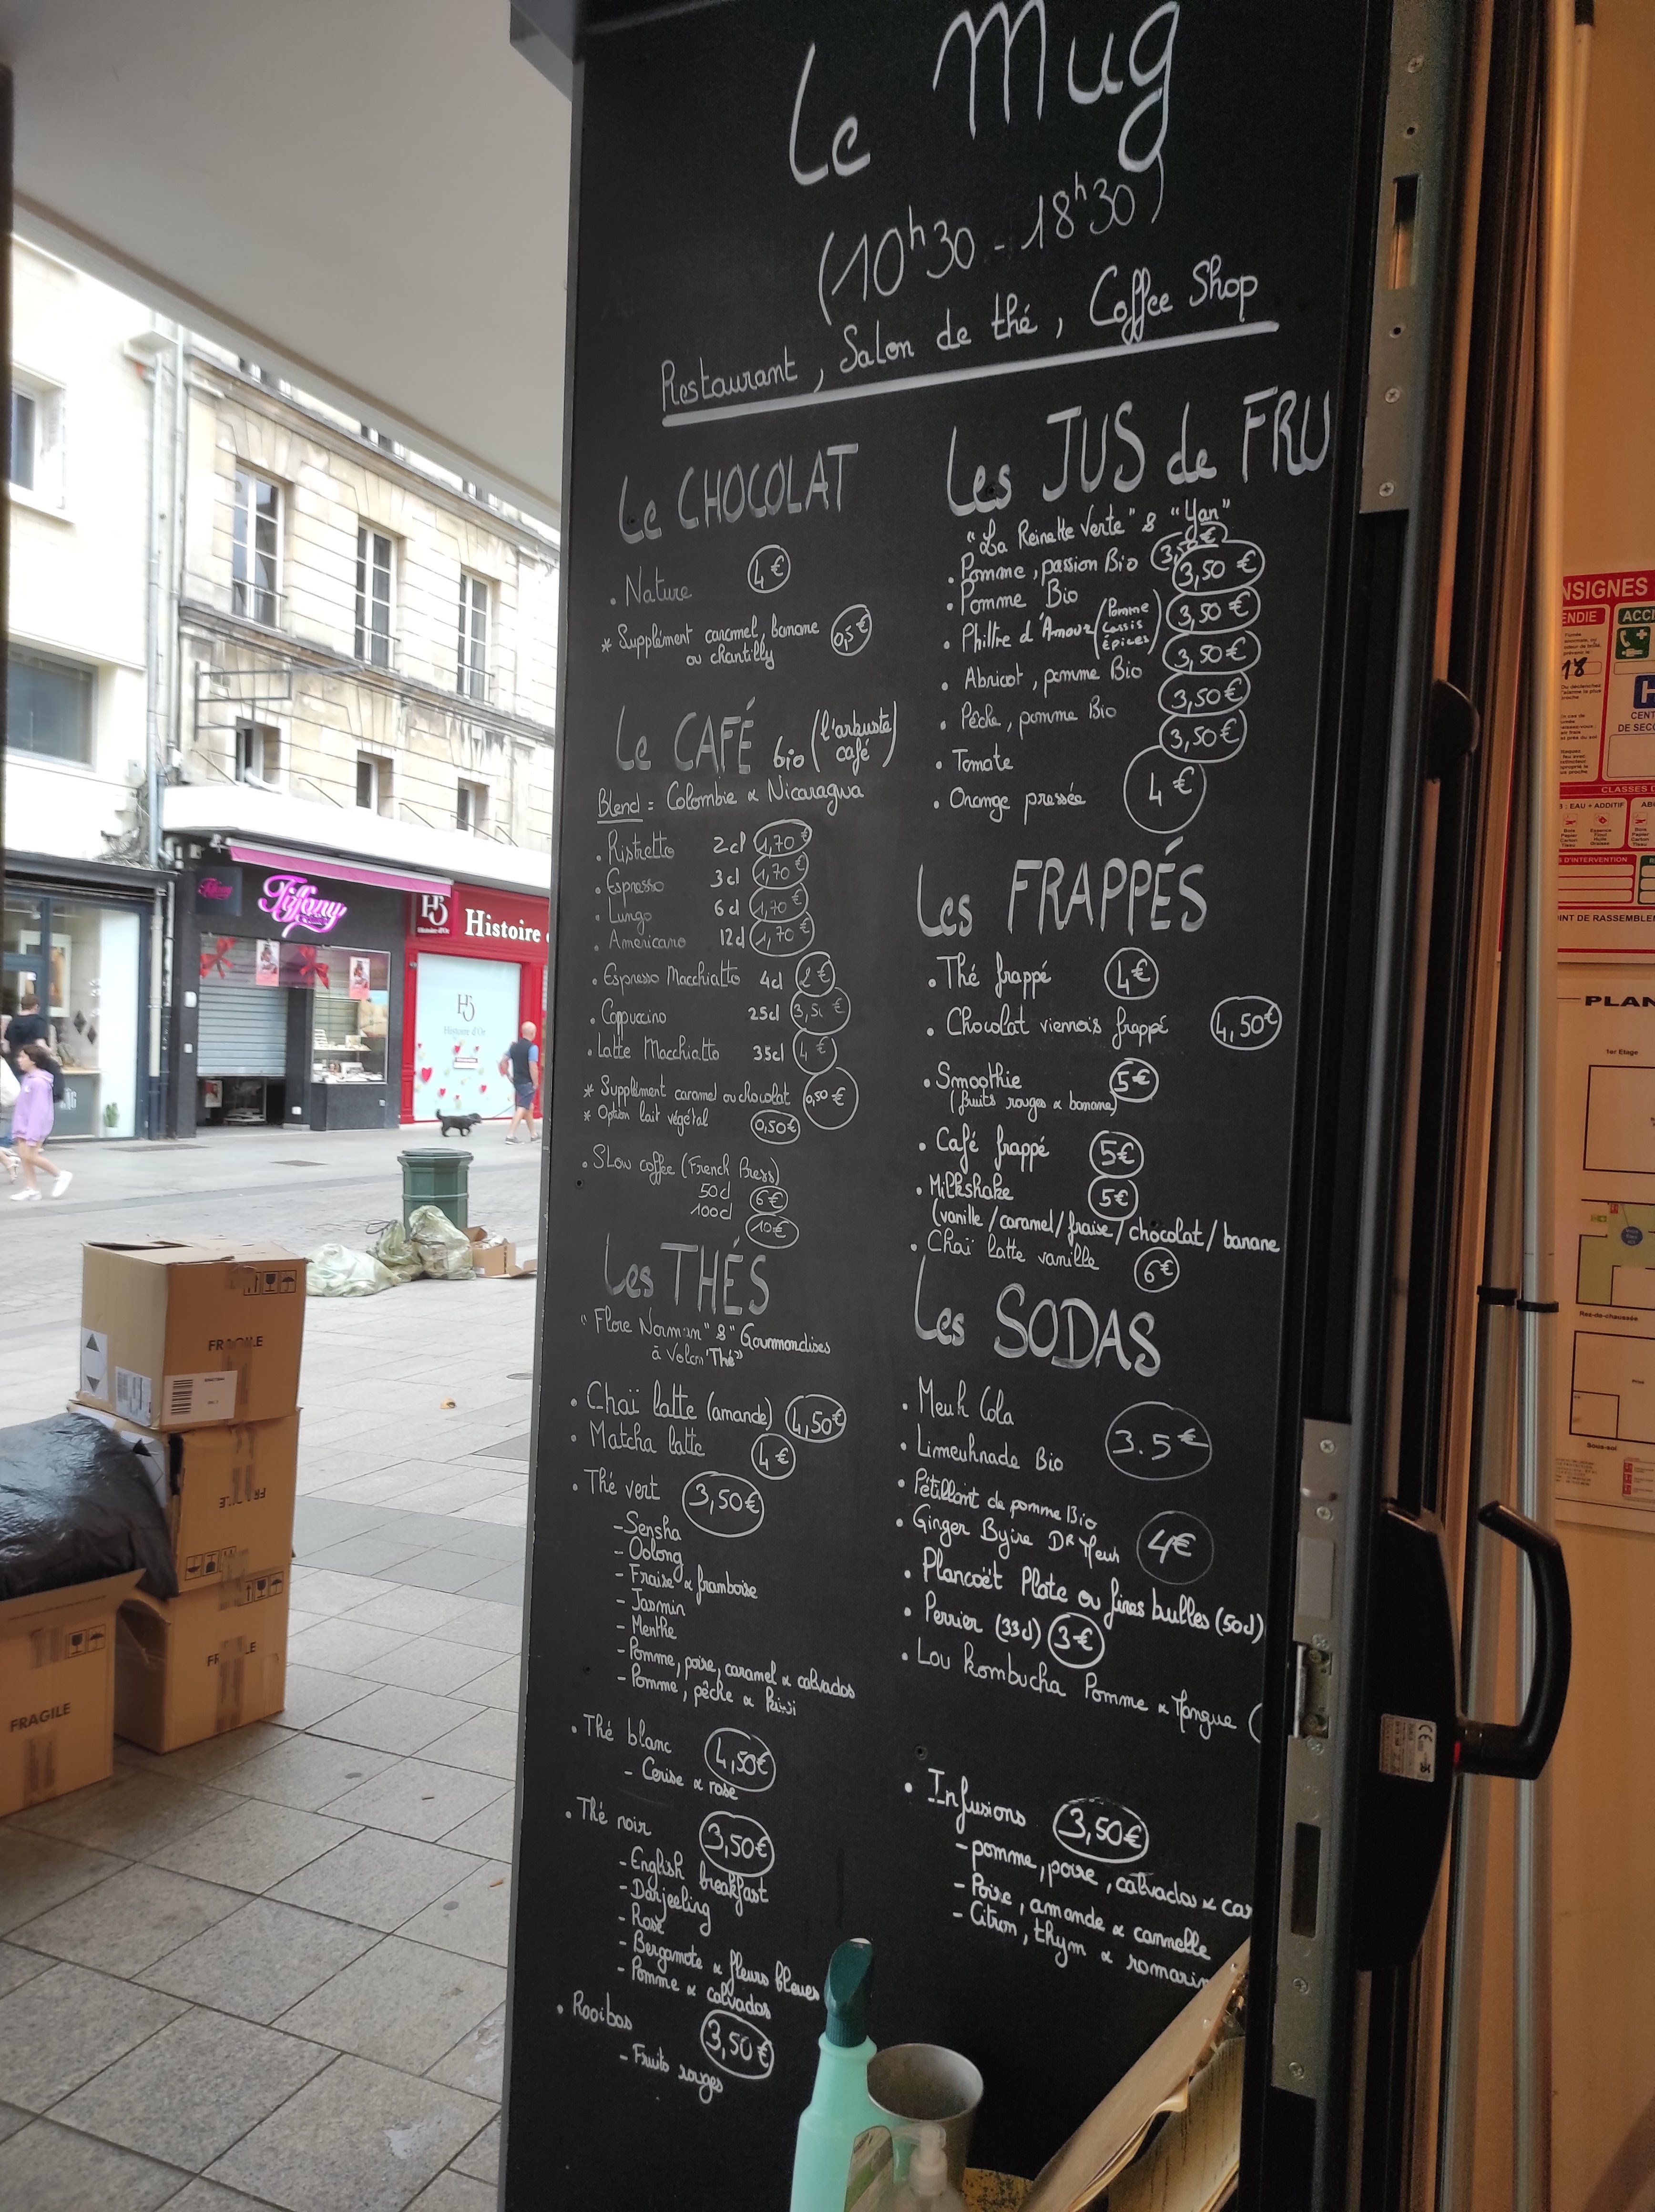 Le Mug
(10h30 - 18h30)
Restaurant, Salon de thé, Coffee Shop
Le CHOCOLAT
. Nature 4€
* Supplément caramel, banane 0,5€
ou chantilly
Le CAFÉ bio (l'arbuste café)
Blend = Colombie & Nicaragua
. Ristretto 2cl 1,70€
. Espresso 3cl 1,70€
. Lungo 6cl 1,70€
. Americano 12cl 1,70€
. Espresso Macchiatto 4cl 2€
. Cappuccino 25cl 3,5€
. Latte Macchiatto 35cl 4€
* Supplément caramel ou chocolat 0,50€
* Option lait végétal 0,50€
. Slow coffee (French Press)
50cl 6€
100cl 10€
Les THÉS
"Flore Norman" & "Gourmandises
à Volon'Thé"
. Chaï latte (amande) 4,50€
. Matcha latte 4€
. Thé vert 3,50€
- Sensha
- Oolong
- Fraise & framboise
- Jasmin
- Menthe
- Pomme, poire, caramel & calvados
- Pomme, pêche & kiwi
. Thé blanc 4,50€
- Cerise & rose
. Thé noir 3,50€
- English breakfast
- Darjeeling
- Rose
- Bergamote & fleurs bleues
- Pomme & calvados
. Rooibos 3,50€
- Fruits rouges
Les JUS de FRU
"La Reinette Verte" & "Yan"
. Pomme, passion Bio 3,50€
. Pomme Bio 3,50€
. Philtre d'Amour (Pomme Cassis Épices) 3,50€
. Abricot, pomme Bio 3,50€
. Pêche, pomme Bio 3,50€
. Tomate 3,50€
. Orange pressée 4€
Les FRAPPÉS
. Thé frappé 4€
. Chocolat viennois frappé 4,50€
. Smoothie 5€
(fruits rouges & banane)
. Café frappé 5€
. Milkshake 5€
(vanille/caramel/fraise/chocolat/banane
. Chaï latte vanille 6€
Les SODAS
. Meuh Cola
. Limeuhnade Bio 3.5€
. Pétillant de pomme Bio
. Ginger Byire Dr Meuh 4€
. Plancoët Plate ou fines bulles (50cl)
. Perrier (33cl) 3€
. Lou Kombucha Pomme & Mangue (
. Infusions 3,50€
- pomme, poire, calvados & car
- Poire, amande & cannelle
- Citron, thym & romarin
Tiffany
Histoire
Histoire d'Or
FRAGILE
FRAGILE
FRAGILE
NSIGNES
ENDIE
ACCI
18
H
CENT
DE SECO
CLASSES D
: EAU + ADDITIF
D'INTERVENTION
INT DE RASSEMBLE
PLAN
1er Etage
Rez-de-chaussée
Sous-sol